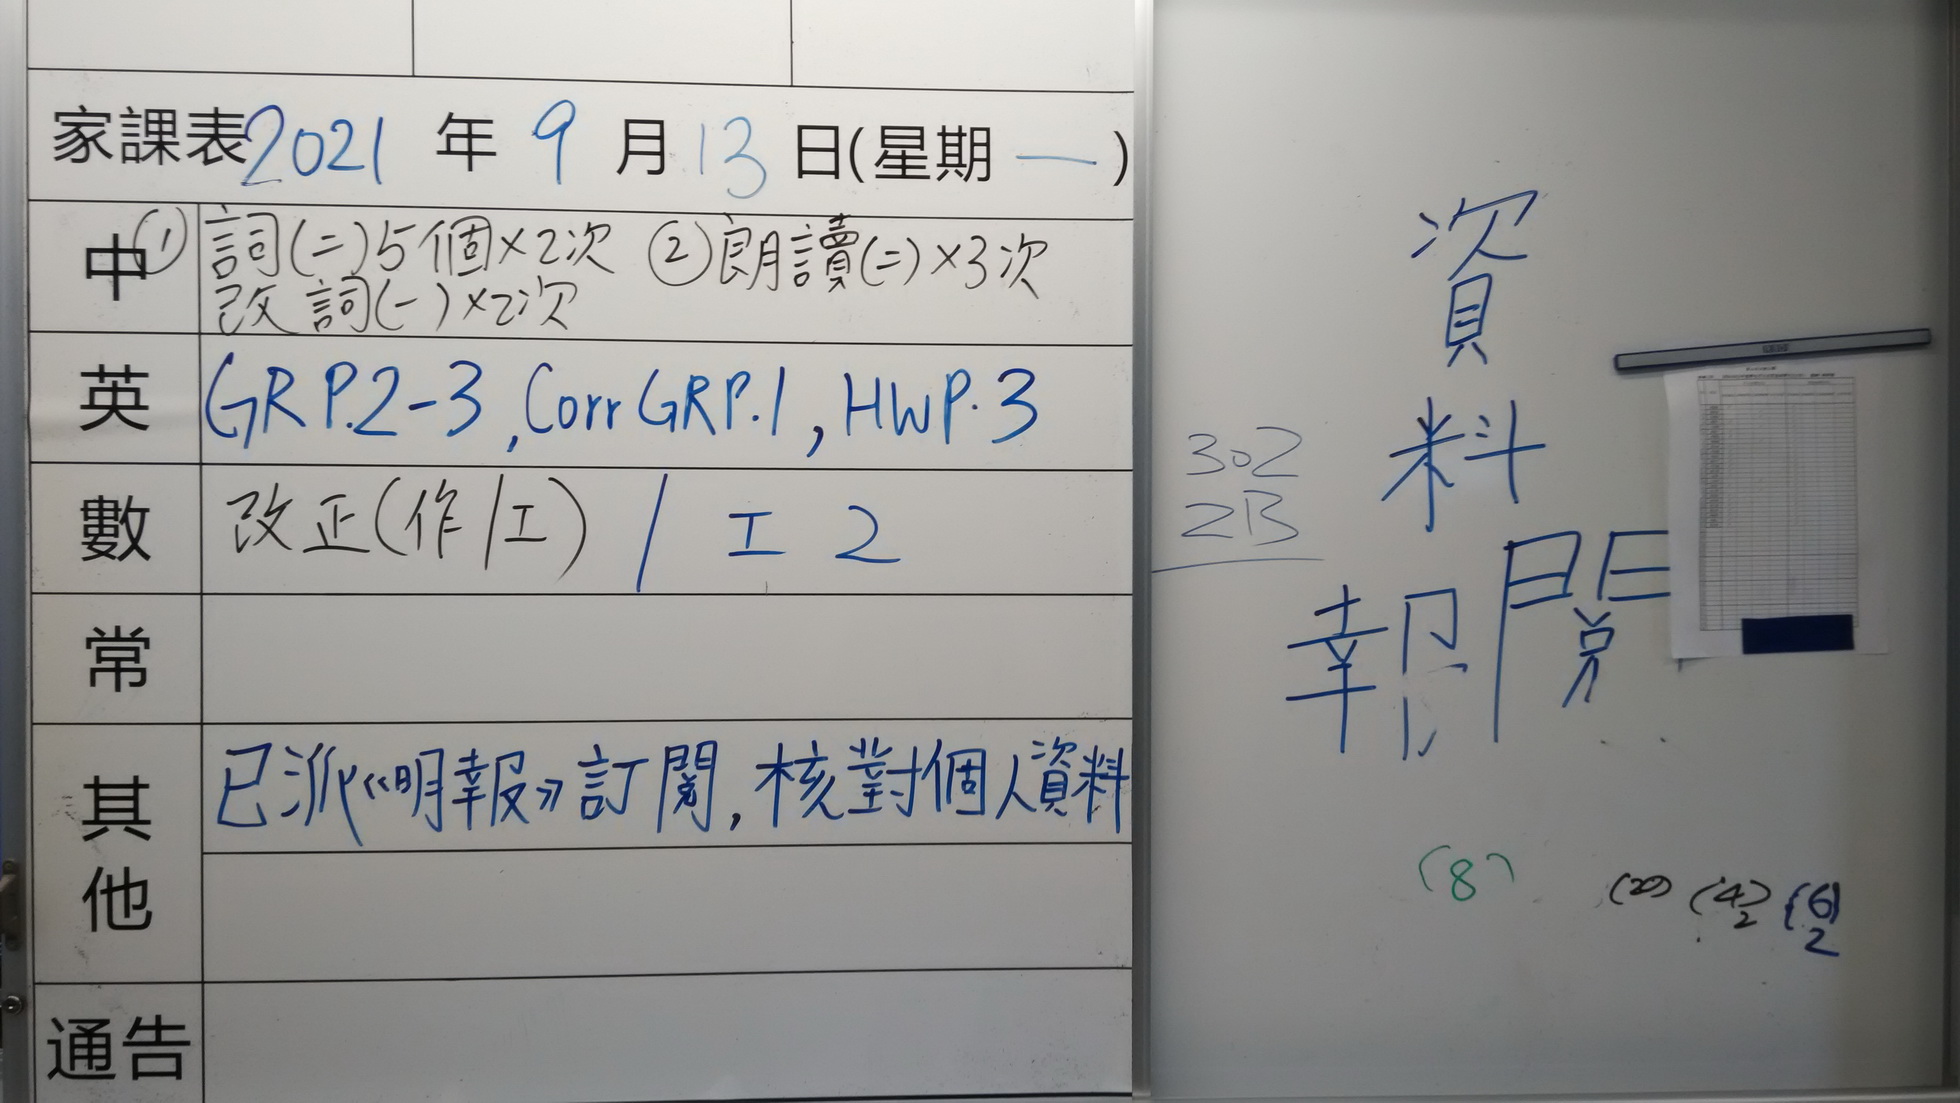 家課表2021 年 9 月 13 日(星期 一 )
中 ① 詞(二)5個×2次 ②朗讀(二)×3次
改詞(一)×2次
英 GR P.2-3, Corr GR P.1, HW P.3
數 改正(作/工) / 工 2
常
其他 已派《明報》訂閱,核對個人資料
通告
資
料
報閱
302
2B
(8)
(20) (4)2 (6)2